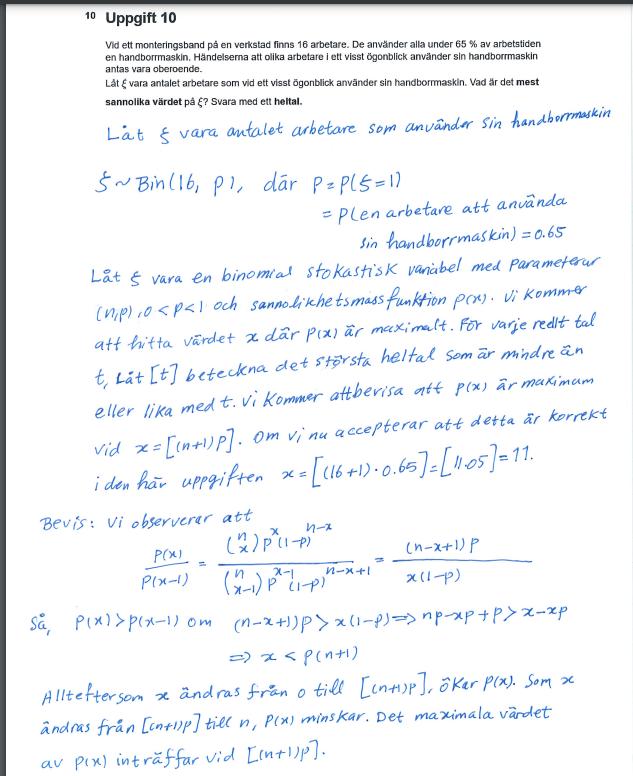 10 Uppgift 10
Vid ett monteringsband på en verkstad finns 16 arbetare. De använder alla under 65 % av arbetstiden
en handborrmaskin. Händelserna att olika arbetare i ett visst ögonblick använder sin handborrmaskin
antas vara oberoende.
Låt ξ vara antalet arbetare som vid ett visst ögonblick använder sin handborrmaskin. Vad är det mest
sannolika värdet på ξ? Svara med ett heltal.
Låt ξ vara antalet arbetare som använder sin handborrmaskin
ξ ~ Bin(16, p), där p = P(ξ=1)
= P(en arbetare att använda
sin handborrmaskin) = 0.65
Låt ξ vara en binomial stokastisk variabel med parameterar
(n,p), 0 < p < 1 och sannolikhetsmassfunktion p(x). Vi kommer
att hitta värdet x där p(x) är maximalt. För varje reellt tal
t, Låt [t] beteckna det största heltal som är mindre än
eller lika med t. Vi kommer att bevisa att p(x) är maximum
vid x = [(n+1)p]. Om vi nu accepterar att detta är korrekt
i den här uppgiften x = [(16+1)·0.65] = [11.05] = 11.
Bevis: Vi observerar att
P(x)/P(x-1) = (n x) p^x (1-p)^(n-x) / (n x-1) p^(x-1) (1-p)^(n-x+1) = (n-x+1)p / x(1-p)
Så, P(x) > p(x-1) om (n-x+1)p > x(1-p) => np-xp+p > x-xp
=> x < p(n+1)
Allteftersom x ändras från 0 till [(n+1)p], ökar p(x). Som x
ändras från [(n+1)p] till n, P(x) minskar. Det maximala värdet
av P(x) inträffar vid [(n+1)p].